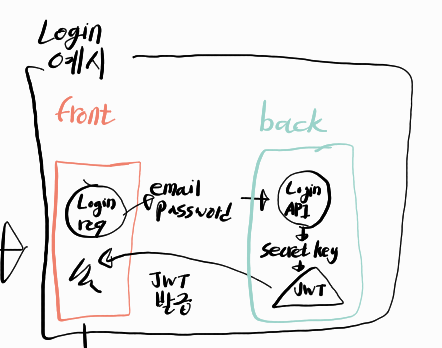 Login
예시
front
back
Login
req
email
password
Login
API
secret key
JWT
JWT
발급